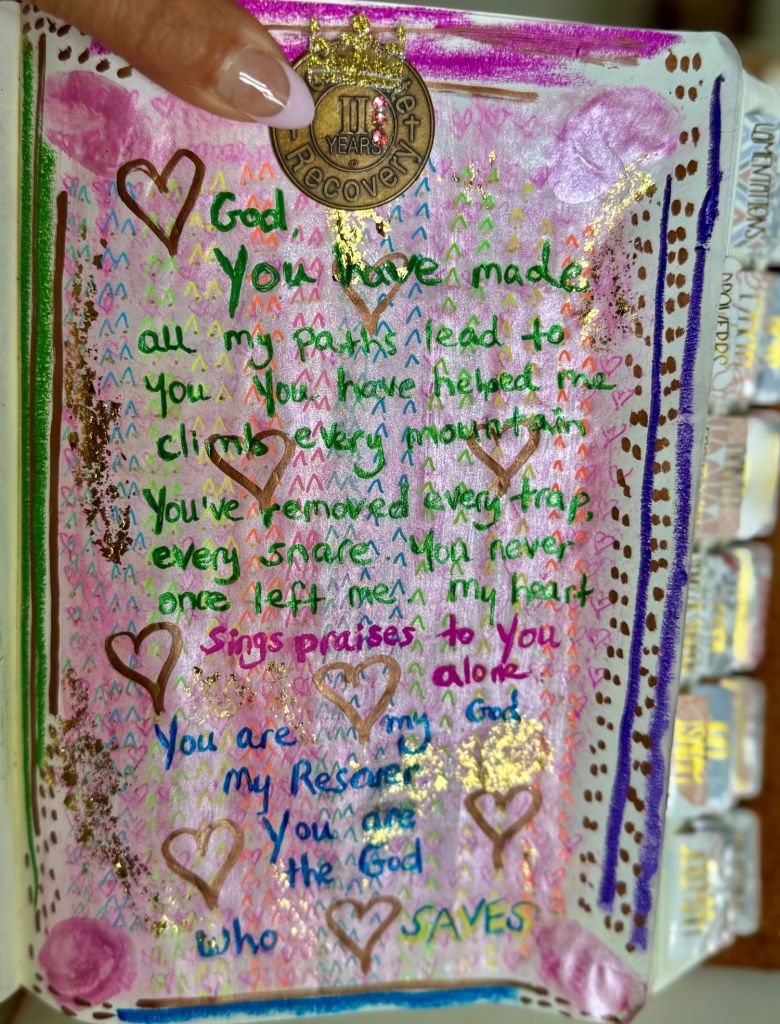 III
YEARS
Recovery
God,
You have made
all my paths lead to
you. You have helped me
climb every mountain
You've removed every trap,
every snare. You never
once left me. My heart
Sings praises to You
alone.
You are my God
My Rescuer
You are
the God
who SAVES